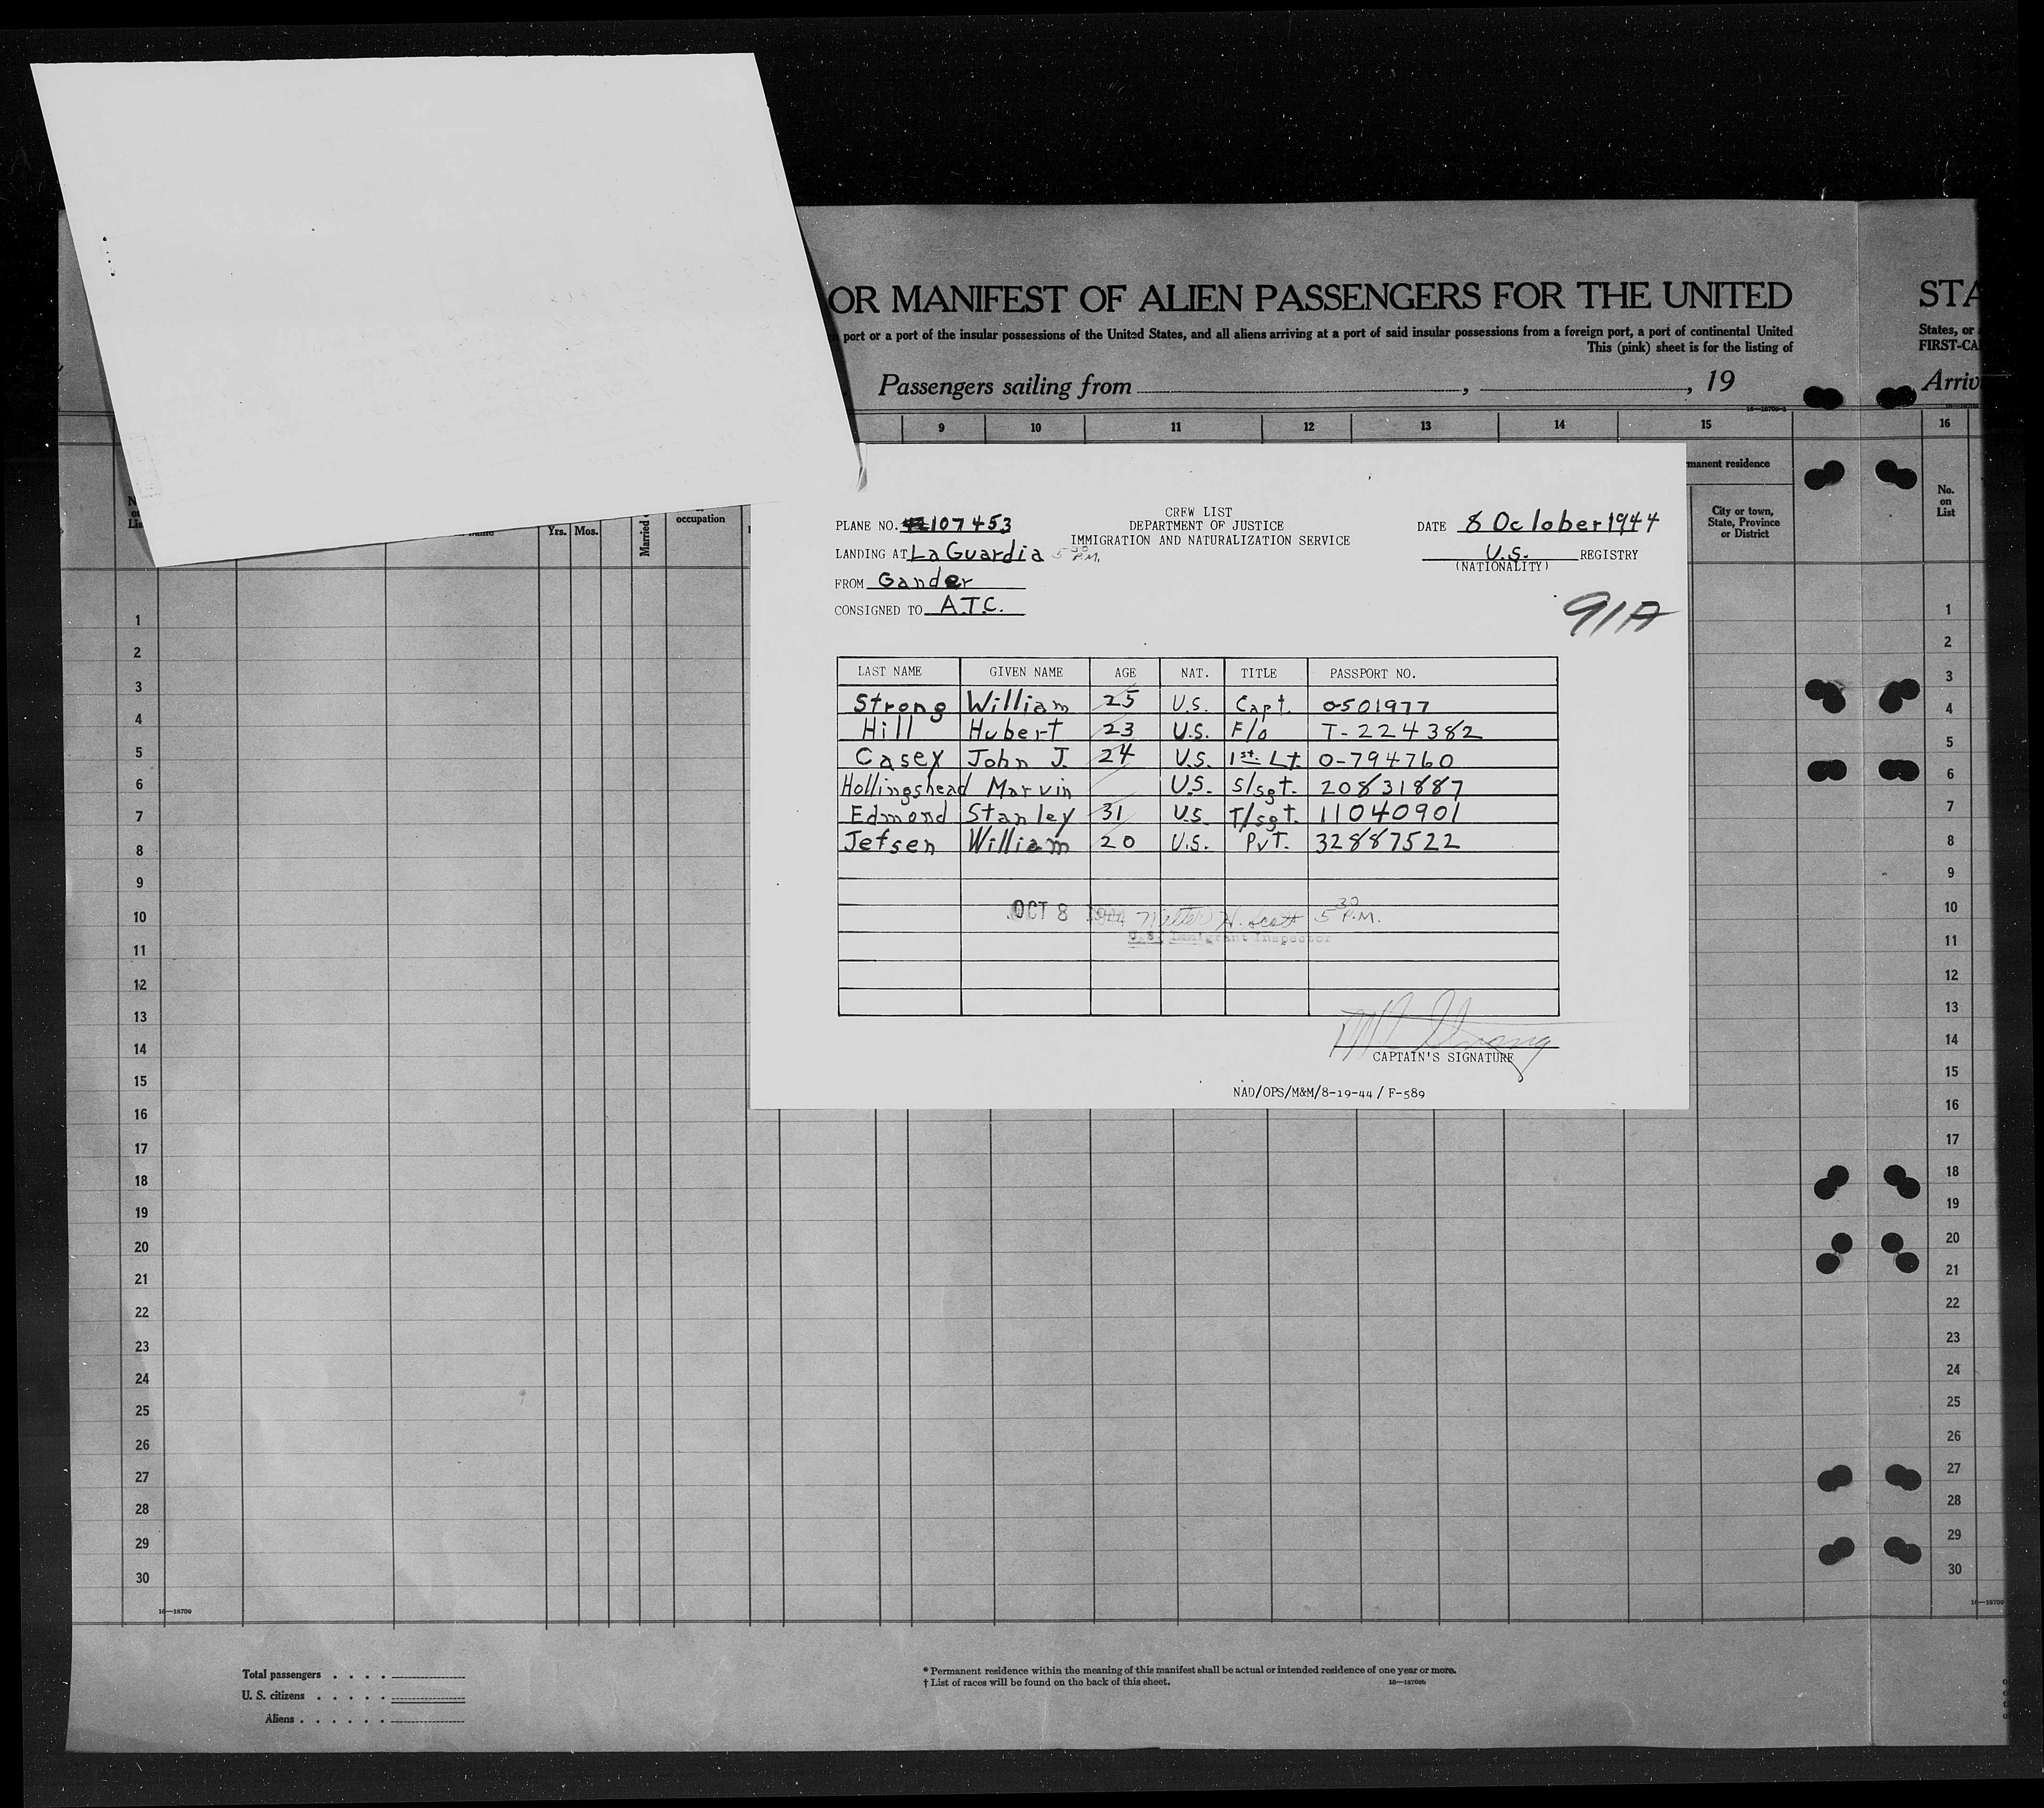 OR MANIFEST OF ALIEN PASSENGERS FOR THE UNITED
STA
port or a port of the insular possessions of the United States, and all aliens arriving at a port of said insular possessions from a foreign port, a port of continental United
States, or
This (pink) sheet is for the listing of
FIRST-CA
Passengers sailing from , , 19
Arriv
16—18709-1
9 10 11 12 13 14 15 16
manent residence
City or town,
State, Province
or District
No.
on
List
occupation
Yrs. Mos.
Married
CREW LIST
DEPARTMENT OF JUSTICE
IMMIGRATION AND NATURALIZATION SERVICE
PLANE NO. 42 107453
DATE 8 October 1944
LANDING AT La Guardia 5 30 P.M.
U.S. REGISTRY
(NATIONALITY)
FROM Gander
CONSIGNED TO A.T.C.
91A
LAST NAME GIVEN NAME AGE NAT. TITLE PASSPORT NO.
Strong William 25 U.S. Capt. 0501977
Hill Hubert 23 U.S. F/o T-224382
Casey John J. 24 U.S. 1st Lt. 0-794760
Hollingshead Marvin U.S. S/sgt. 20831887
Edmond Stanley 31 U.S. T/sgt. 11040901
Jefsen William 20 U.S. PvT. 32887522
OCT 8 1944 Walter H. Scott 5 30 P.M.
U.S. Immigrant Inspector
CAPTAIN'S SIGNATURE
NAD/OPS/M&M/8-19-44 / F-589
1 1
2 2
3 3
4 4
5 5
6 6
7 7
8 8
9 9
10 10
11 11
12 12
13 13
14 14
15 15
16 16
17 17
18 18
19 19
20 20
21 21
22 22
23 23
24 24
25 25
26 26
27 27
28 28
29 29
30 30
16—18709
16—18709
Total passengers . . . .
U. S. citizens . . . . .
Aliens . . . . . .
* Permanent residence within the meaning of this manifest shall be actual or intended residence of one year or more.
† List of races will be found on the back of this sheet.
16—18709b